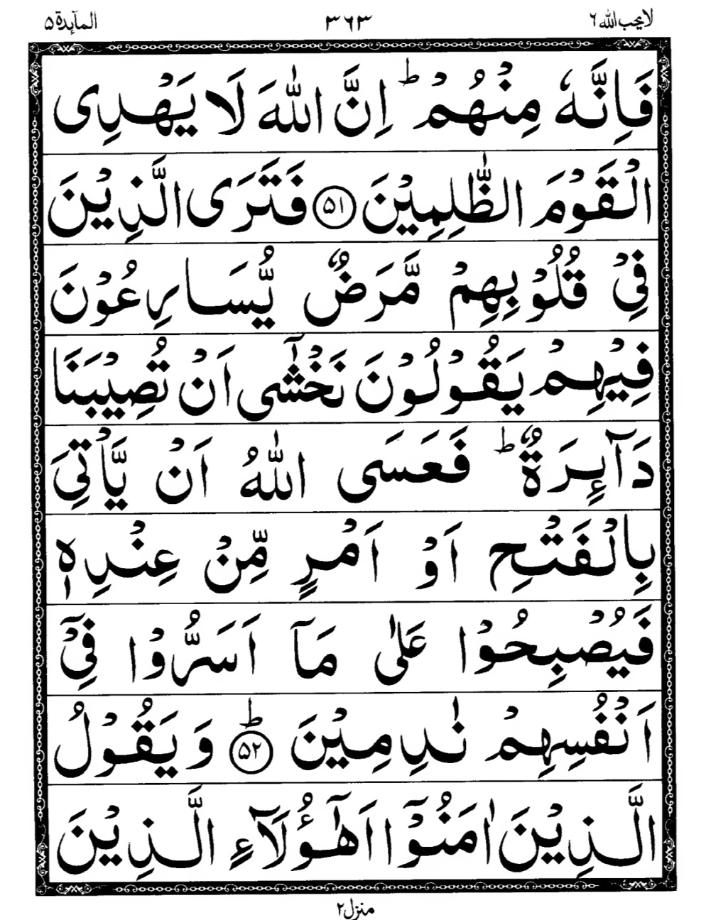 لا يحب الله ٦ ٣٦٣ المآئدة ٥
فَاِنَّهٗ مِنْهُمْ ؕ اِنَّ اللّٰهَ لَا يَهْدِى
الْقَوْمَ الظّٰلِمِيْنَ ﴿۵۱﴾ فَتَرَى الَّذِيْنَ
فِيْ قُلُوْبِهِمْ مَّرَضٌ يُّسَارِعُوْنَ
فِيْهِمْ يَقُوْلُوْنَ نَخْشٰٓى اَنْ تُصِيْبَنَا
دَآئِرَةٌ ؕ فَعَسَى اللّٰهُ اَنْ يَّاْتِيَ
بِالْفَتْحِ اَوْ اَمْرٍ مِّنْ عِنْدِهٖ
فَيُصْبِحُوْا عَلٰى مَآ اَسَرُّوْا فِيْٓ
اَنْفُسِهِمْ نٰدِمِيْنَ ﴿۵۲﴾ؕ وَيَقُوْلُ
الَّذِيْنَ اٰمَنُوْٓا اَهٰٓؤُلَآءِ الَّذِيْنَ
منزل ٢